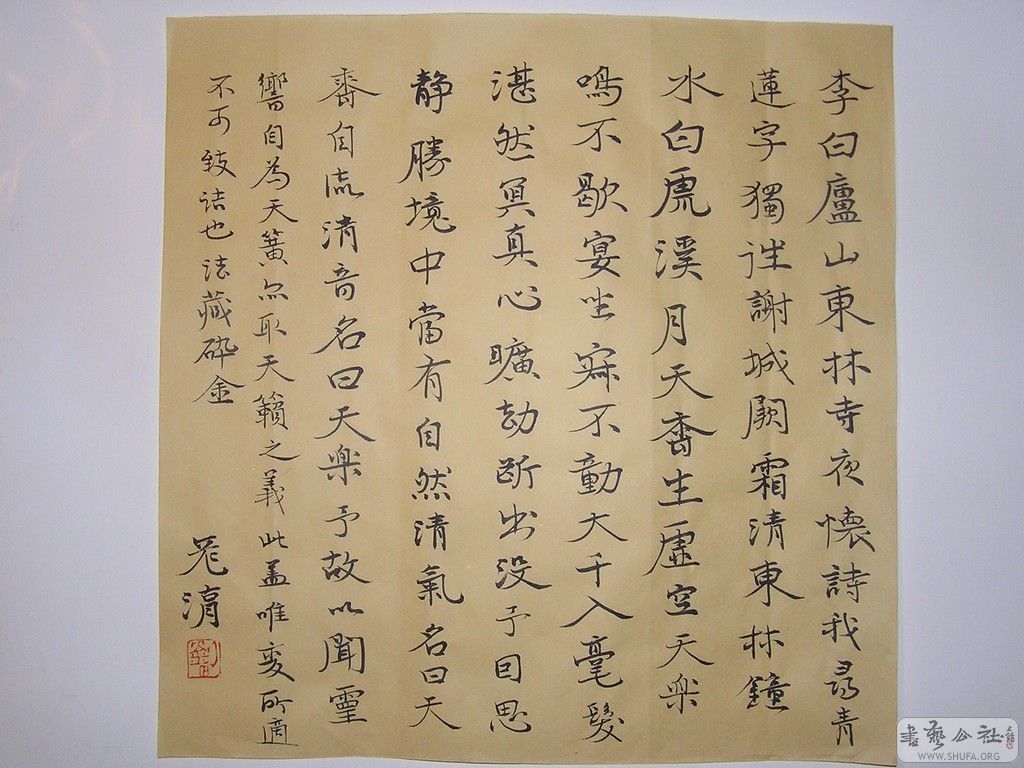 李白廬山東林寺夜懷詩我尋青
蓮宇獨往謝城闕霜清東林鐘
水白虎溪月天香生虛空天樂
鳴不歇宴坐寂不動大千入毫髮
湛然冥真心曠劫斷出沒予因思
静勝境中當有自然清氣名曰天
香自流清音名曰天樂予故以聞靈
響自為天簧亦取天籟之義此盖唯變所適
不可致詰也法藏碎金
書藝公社
WWW.SHUFA.ORG